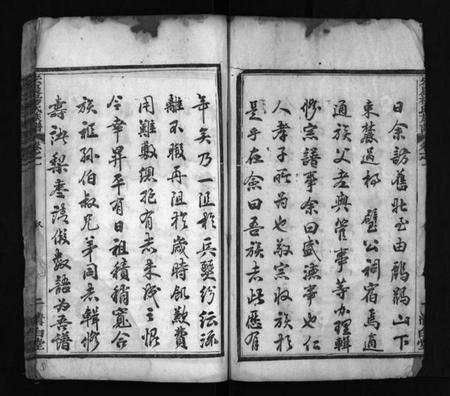 日余訪舊北邑由鷓鴣山下
東麓過
璧公祠宿焉適
通族父老與管事等办理輯
修宗譜事余曰盛漢事也仁
人孝子所為也敬宗收族於
是乎在僉曰吾族志此歷有
年矣乃一阻於兵燹紛紜流
離不暇再阻於歲時飢歉費
用難敷懷抱有志未逮之恨
今幸昇平有日祖積稍寬合
族祖孫伯叔兄弟同志輯修
壽諸梨棗請俊數語為吾譜